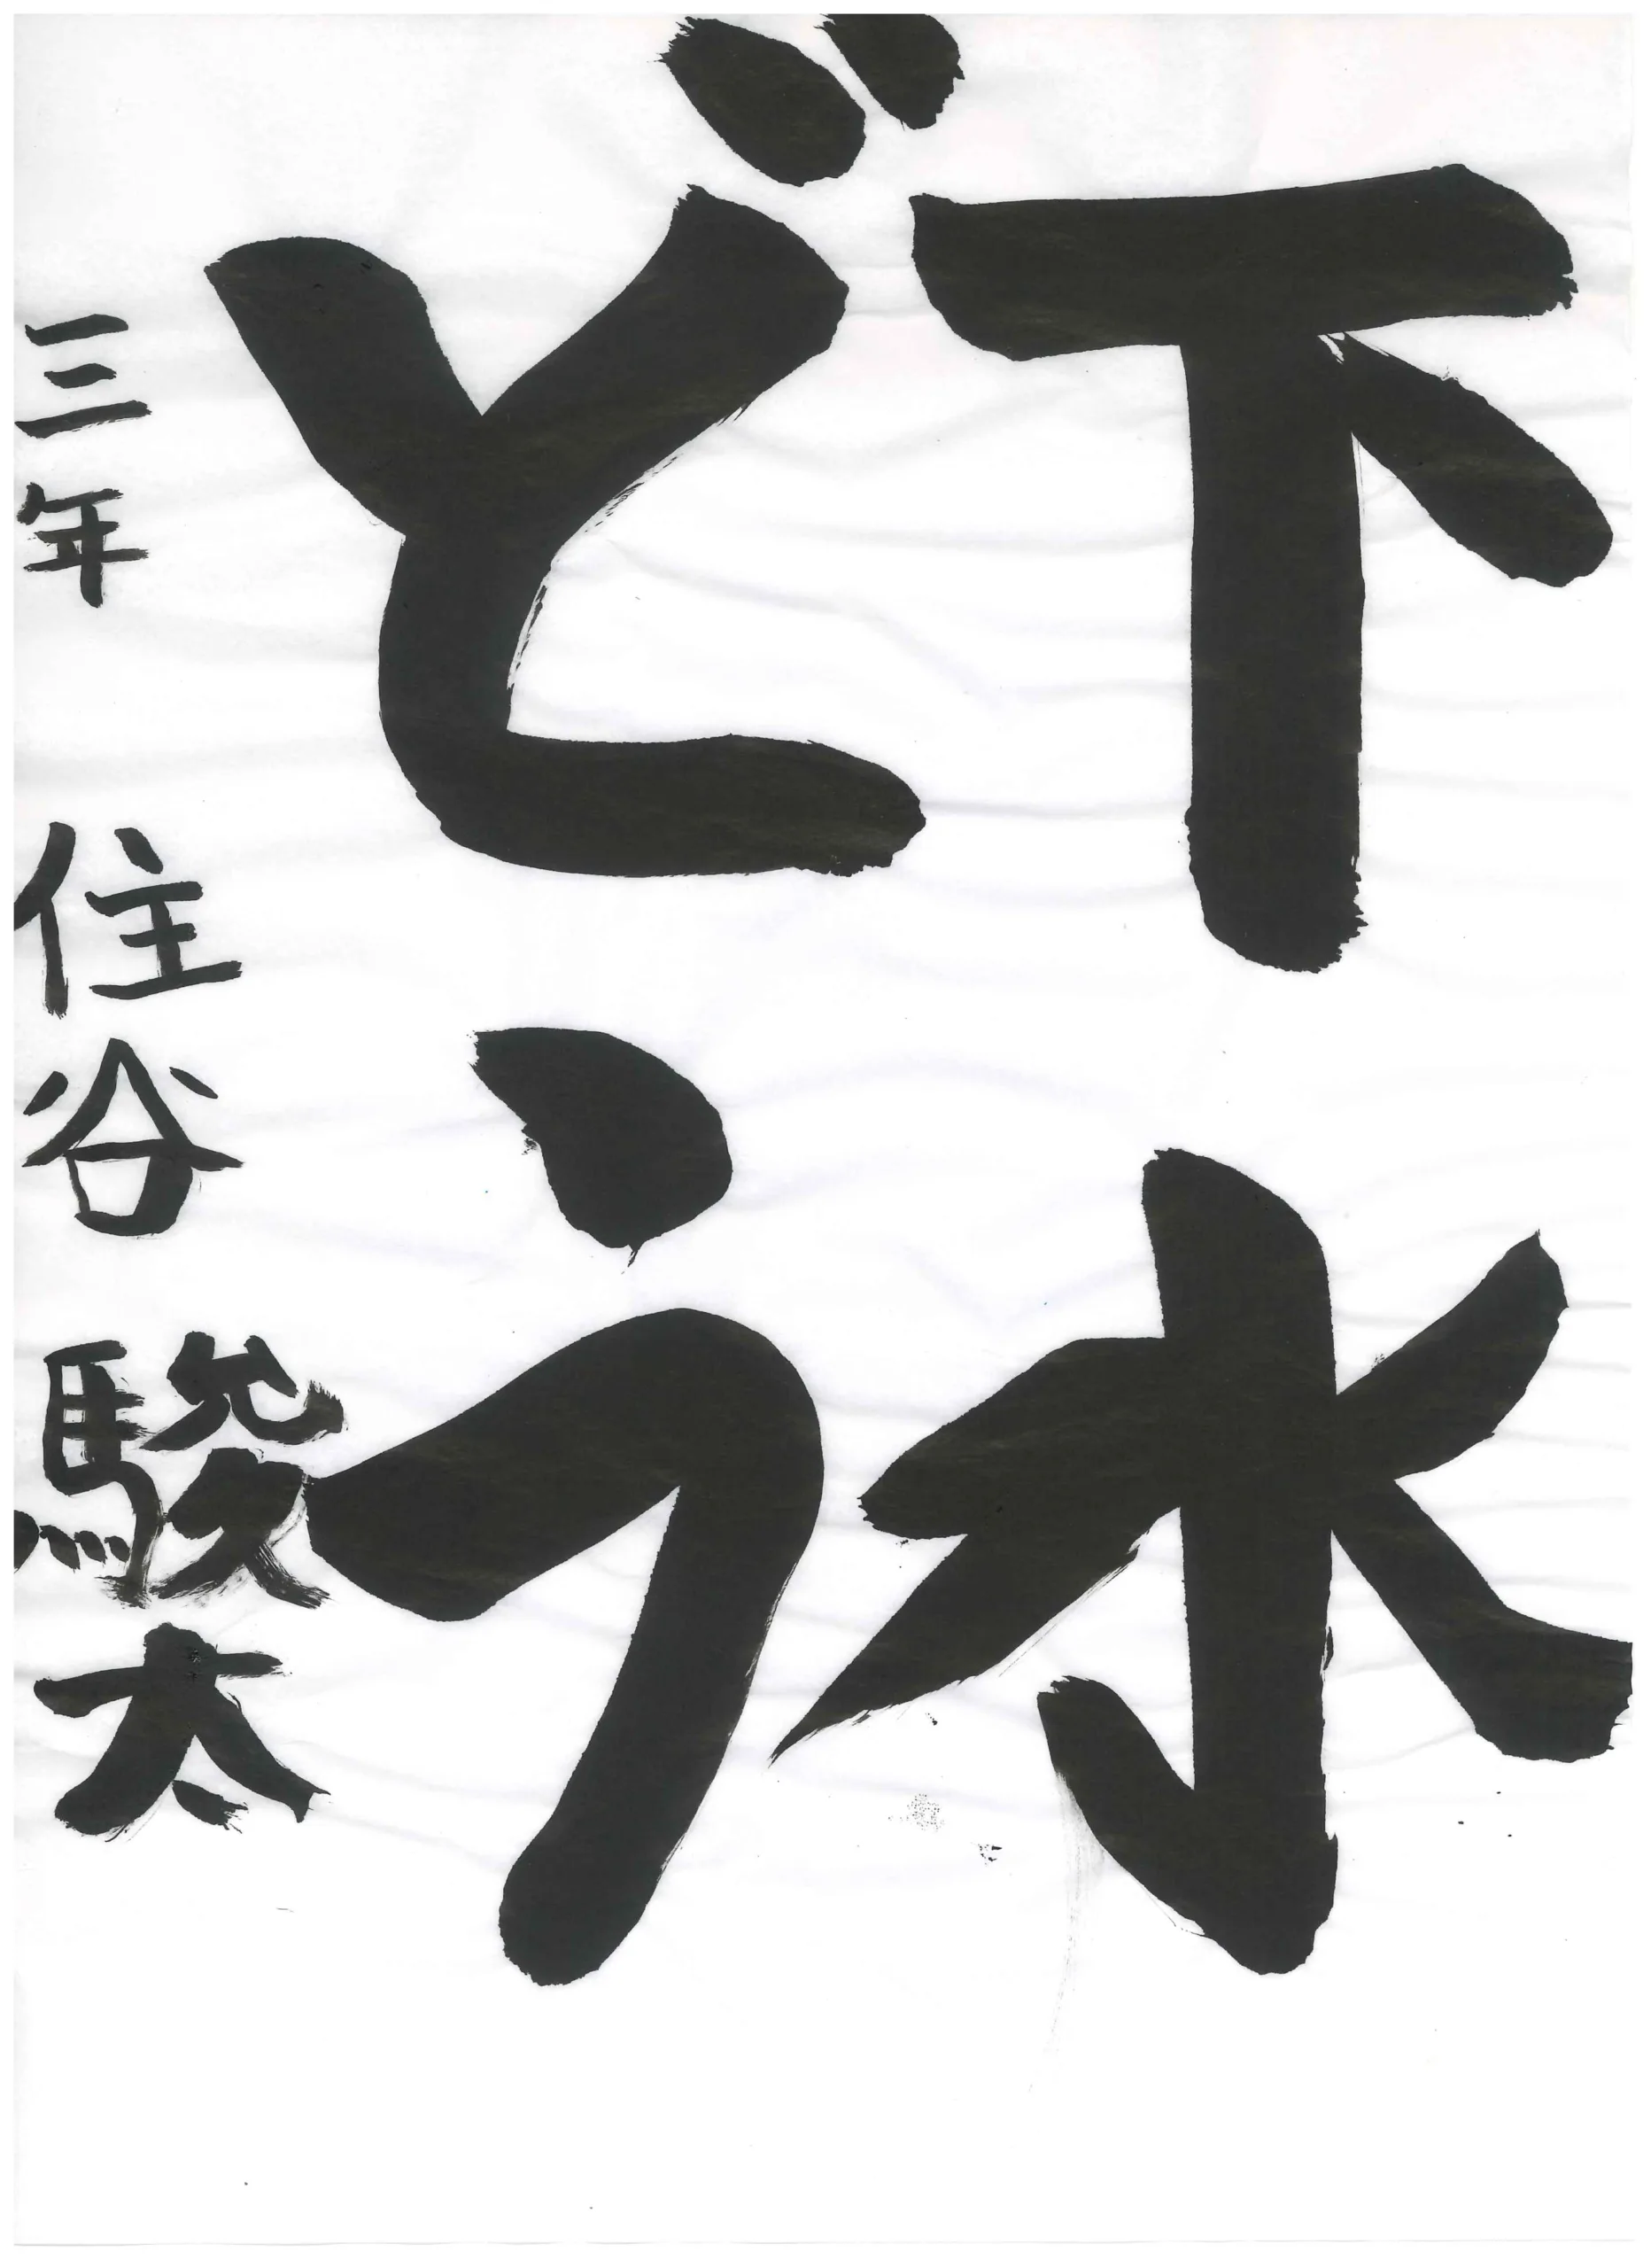 下水
どう
三年 住谷 駿太